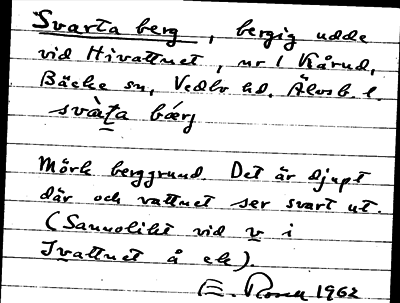 Svarta berg, bergig udde
vid Hivattnet, nr 1 Kårud,
Bäcke sn, Vedbo hd. Älvsb. l.
svàta bærg
Mörk berggrund. Det är djupt
där och vattnet ser svart ut.
(Sannolikt vid v i
Ivattnet å ek).
E. Rosén 1962